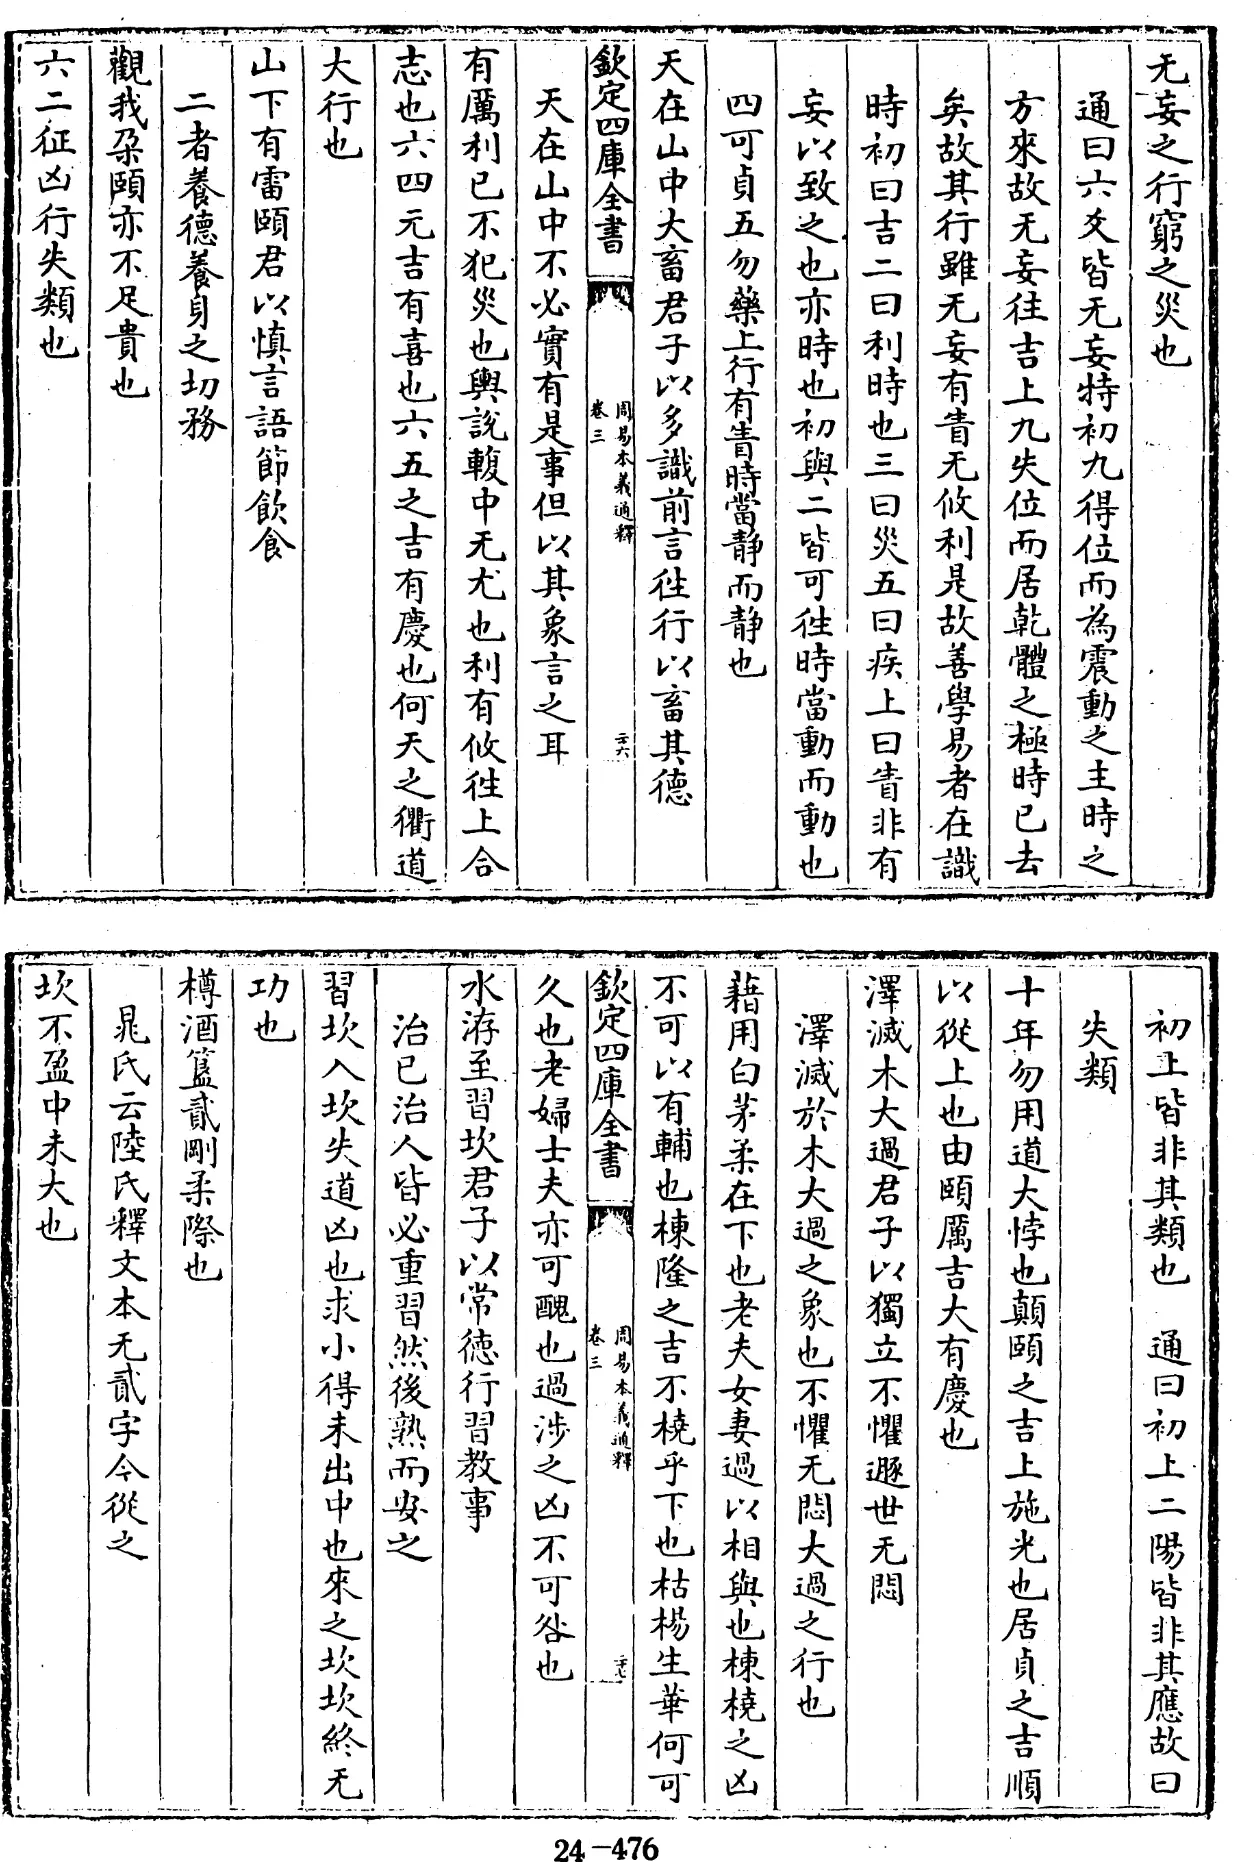 无妄之行窮之災也
通曰六爻皆无妄特初九得位而為震動之主時之
方來故无妄往吉上九失位而居乾體之極時已去
矣故其行雖无妄有眚无攸利是故善學易者在識
時初曰吉二曰利時也三曰災五曰疾上曰眚非有
妄以致之也亦時也初與二皆可往時當動而動也
四可貞五勿藥上行有眚時當静而静也
天在山中大畜君子以多識前言往行以畜其德
欽定四庫全書
周易本義通釋
卷三
二十六
天在山中不必實有是事但以其象言之耳
有厲利已不犯災也輿說輹中无尤也利有攸往上合
志也六四元吉有喜也六五之吉有慶也何天之衢道
大行也
山下有雷頤君以慎言語節飲食
二者養德養身之切務
觀我朶頤亦不足貴也
六二征凶行失類也
初上皆非其類也 通曰初上二陽皆非其應故曰
失類
十年勿用道大悖也顛頤之吉上施光也居貞之吉順
以從上也由頤厲吉大有慶也
澤滅木大過君子以獨立不懼遯世无悶
澤滅於木大過之象也不懼无悶大過之行也
藉用白茅柔在下也老夫女妻過以相與也棟橈之凶
不可以有輔也棟隆之吉不橈乎下也枯楊生華何可
欽定四庫全書
周易本義通釋
卷三
二十七
久也老婦士夫亦可醜也過涉之凶不可咎也
水洊至習坎君子以常德行習教事
治已治人皆必重習然後熟而安之
習坎入坎失道凶也求小得未出中也來之坎坎終无
功也
樽酒簋貳剛柔際也
晁氏云陸氏釋文本无貳字今從之
坎不盈中未大也
24-476